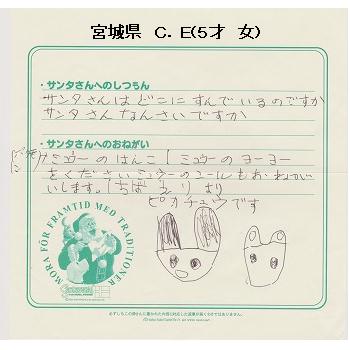 宮城県 C. E(5才 女)
・サンタさんへのしつもん
サンタさんはどこにすんでいるのですか
サンタさんなんさいですか
・サンタさんへのおねがい
ミュウーのはんこ ミュウーのヨーヨー
をください ミュウーのシールもおねがい
いします。ちば えり より
ピカチュウです
MORA FÖR FRAMTID MED TRADITIONER